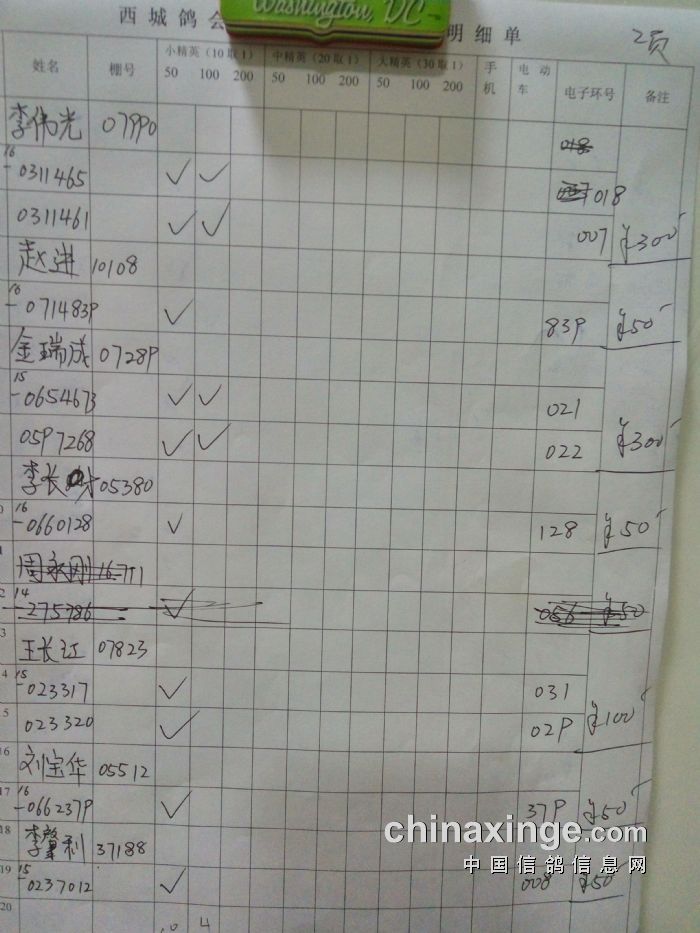 Washington, DC
西城鸽会 明细单
2页
姓名 棚号 小精英（10取1） 中精英（20取1） 大精英（30取1） 手机 电动车 电子环号 备注
50 100 200 50 100 200 50 100 200
李伟光 07990
16-0311465 ✓ ✓ 018
0311461 ✓ ✓ 007 ¥300
赵进 10108
16-0714839 ✓ 839 ¥50
金瑞成 07289
15-0654673 ✓ ✓ 021
0597268 ✓ ✓ 022 ¥300
李长 05380
16-0660128 ✓ 128 ¥50
周永刚 16711
14-275786 ✓ 056 ¥50
3 王长江 07823
4 15-023317 ✓ 031
5 023320 ✓ 029 ¥100
16 刘宝华 05512
17 16-0662379 ✓ 379 ¥50
18 李馨利 37188
19 15-0237012 ✓ 008 ¥50
20
chinaxinge.com
中国信鸽信息网